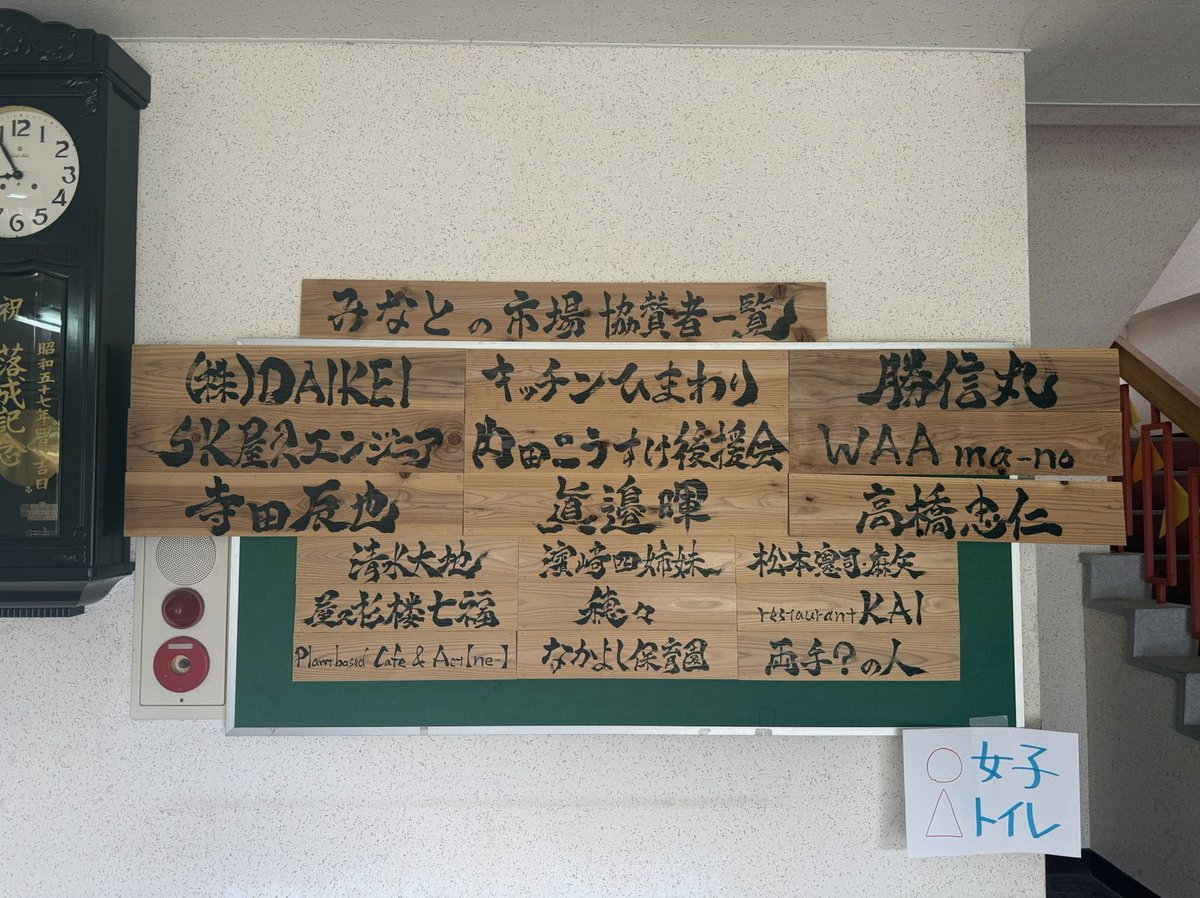 12 1 2 3 4 5 6 7
祝 落成記念
昭和五十七年 吉日
みなとの市場 協賛者一覧
(株)DAIKEI キッチンひまわり 勝信丸
SK屋久エンジニア 内田こうすけ後援会 WAA ma-no
寺田辰也 真邉暉 高橋忠仁
清水大地 濱崎四姉妹 松本憲司・麻矢
屋久杉楼七福 穂々 restaurant KAI
Plantbased Cafe & Act【ne-】 なかよし保育園 両手?の人
女子
トイレ